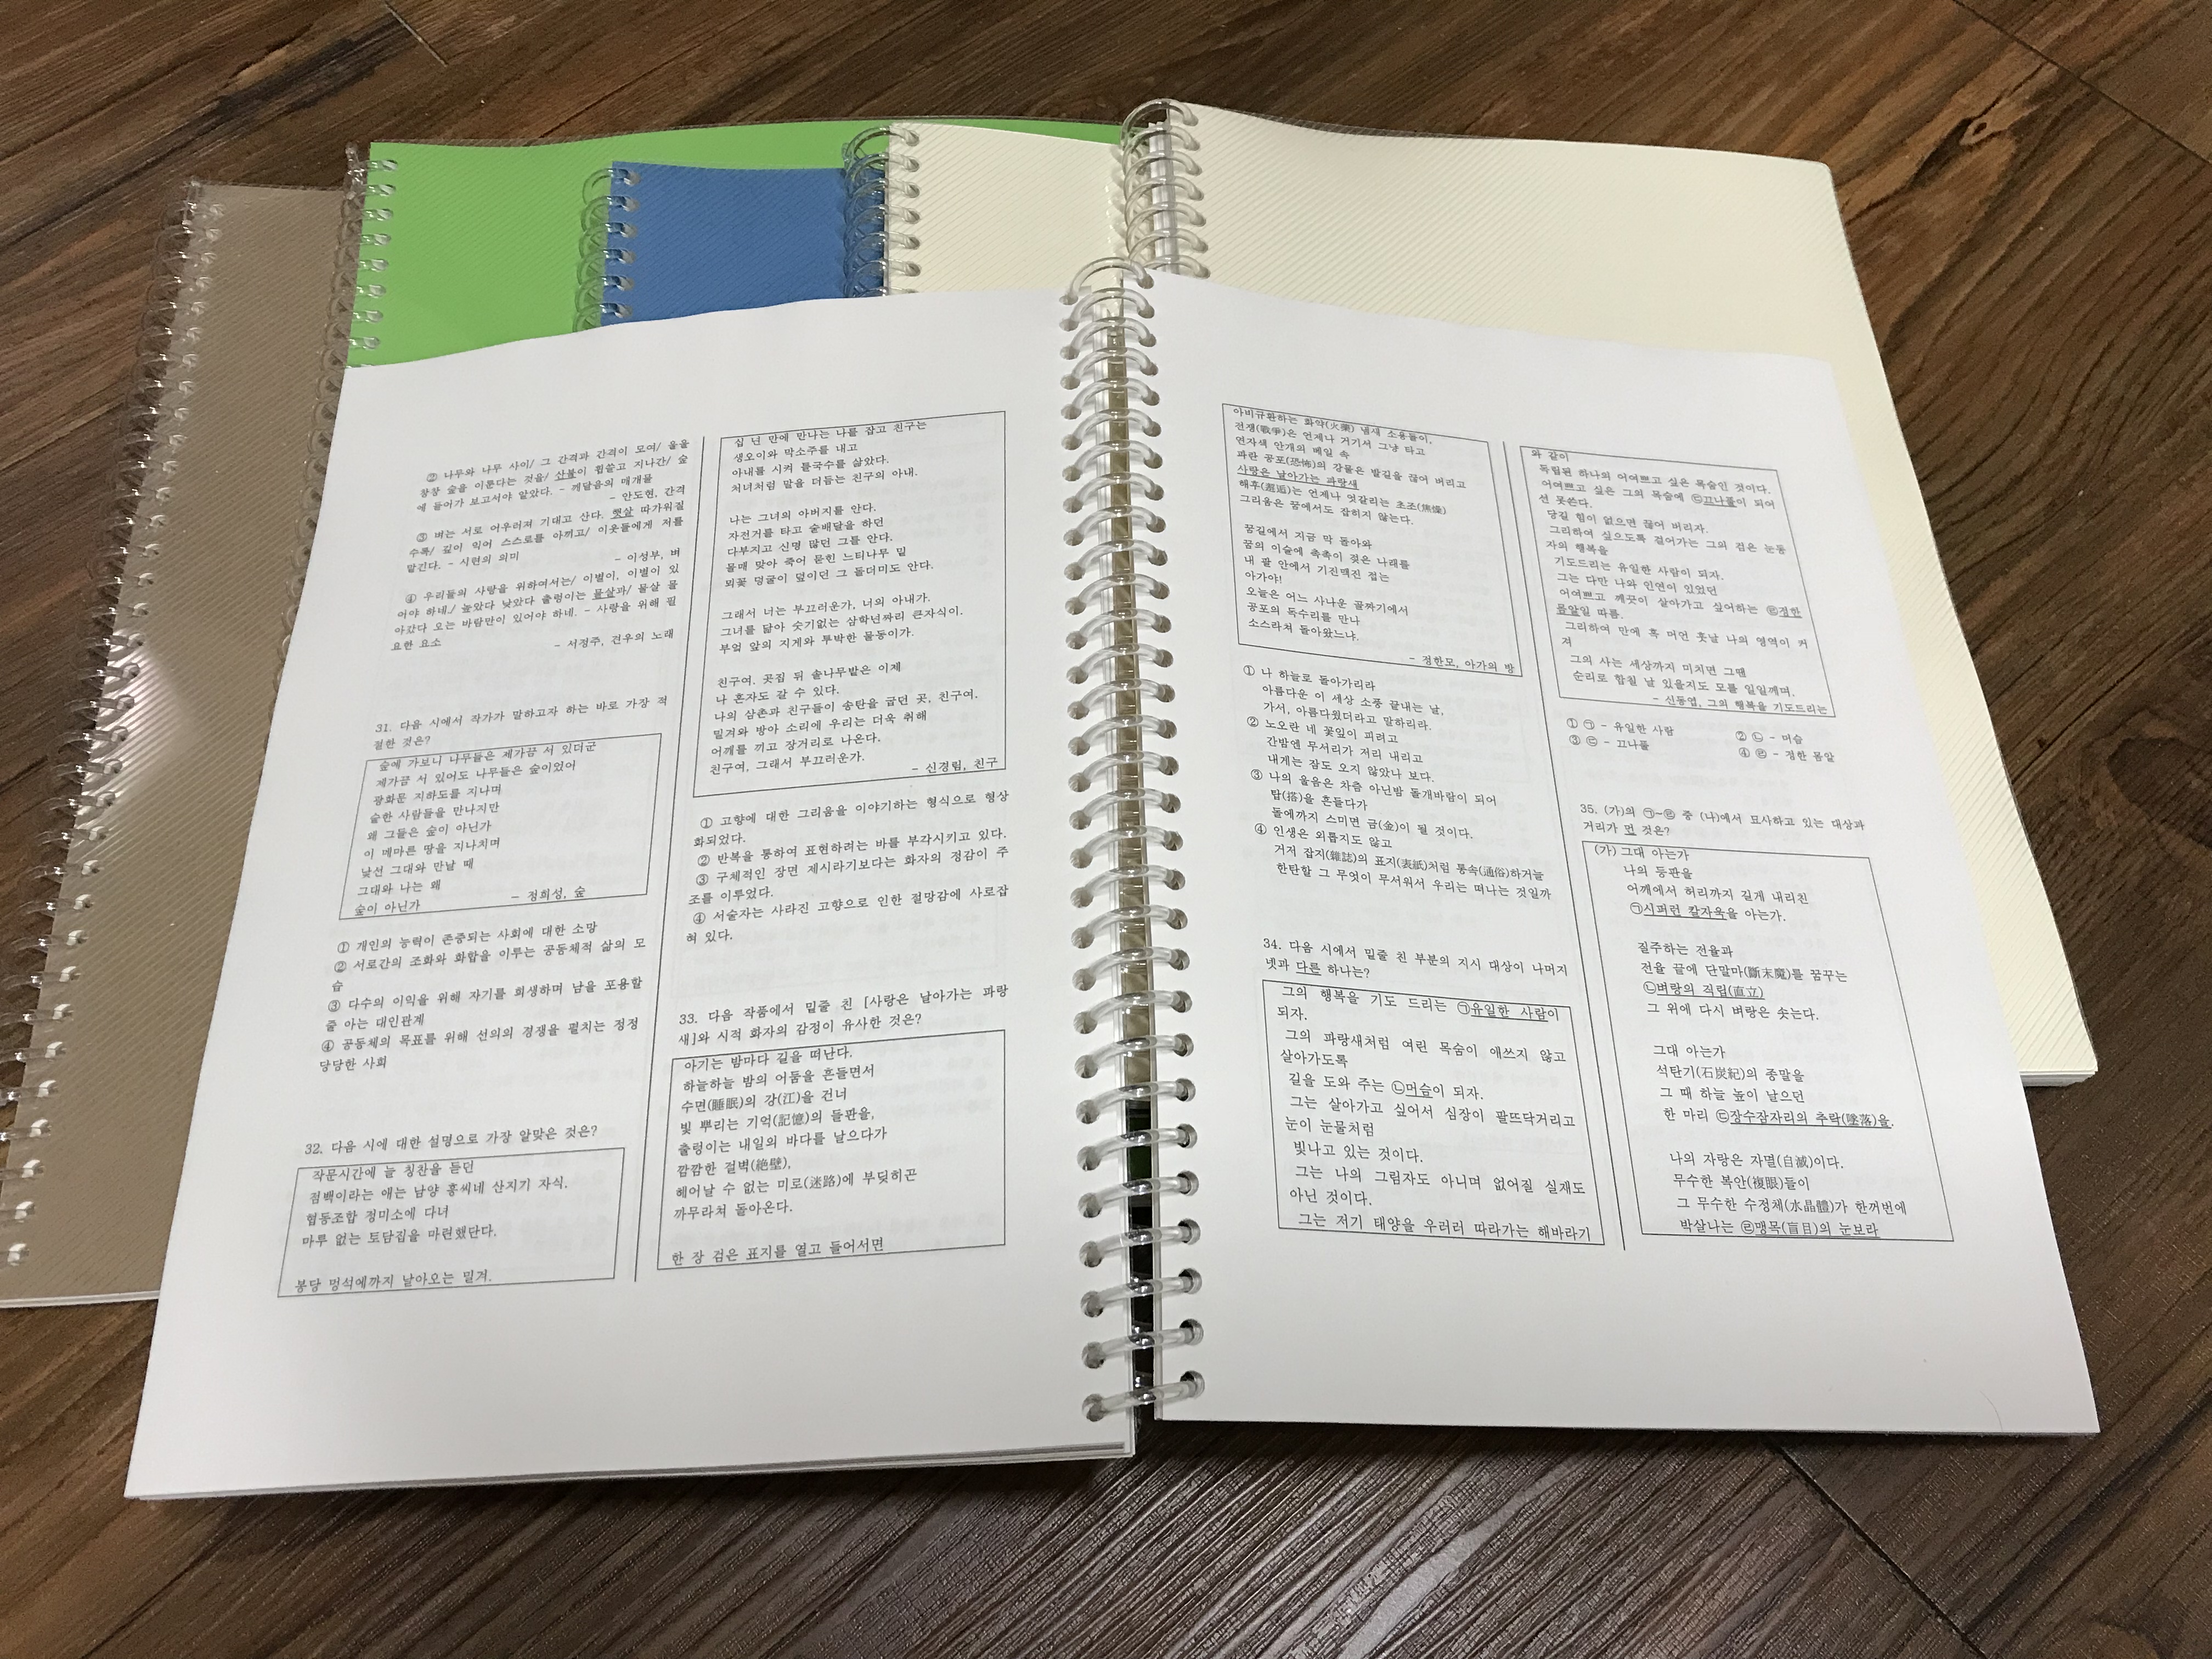 ② 나무와 나무 사이/ 그 간격과 간격이 모여/ 울울
창창 숲을 이룬다는 것을/ 산불이 휩쓸고 지나간/ 숲
에 들어가 보고서야 알았다. - 깨달음의 매개물
- 안도현, 간격
③ 벼는 서로 어우러져 기대고 산다. 햇살 따가워질
수록/ 깊이 익어 스스로를 아끼고/ 이웃들에게 저를
맡긴다. - 시련의 의미
- 이성부, 벼
④ 우리들의 사랑을 위하여서는/ 이별이, 이별이 있
어야 하네./ 높았다 낮았다 출렁이는 물살과/ 물살 몰
아갔다 오는 바람만이 있어야 하네. - 사랑을 위해 필
요한 요소
- 서정주, 견우의 노래
31. 다음 시에서 작가가 말하고자 하는 바로 가장 적
절한 것은?
숲에 가보니 나무들은 제가끔 서 있더군
제가끔 서 있어도 나무들은 숲이었어
광화문 지하도를 지나며
숱한 사람들을 만나지만
왜 그들은 숲이 아닌가
이 메마른 땅을 지나치며
낯선 그대와 만날 때
그대와 나는 왜
숲이 아닌가
- 정희성, 숲
① 개인의 능력이 존중되는 사회에 대한 소망
② 서로간의 조화와 화합을 이루는 공동체적 삶의 모
습
③ 다수의 이익을 위해 자기를 희생하며 남을 포용할
줄 아는 대인관계
④ 공동체의 목표를 위해 선의의 경쟁을 펼치는 정정
당당한 사회
32. 다음 시에 대한 설명으로 가장 알맞은 것은?
작문시간에 늘 칭찬을 듣던
점백이라는 애는 남양 홍씨네 산지기 자식.
협동조합 정미소에 다녀
마루 없는 토담집을 마련했단다.
봉당 멍석에까지 날아오는 밀겨.
십 년 만에 만나는 나를 잡고 친구는
생오이와 막소주를 내고
아내를 시켜 틀국수를 삶았다.
처녀처럼 말을 더듬는 친구의 아내.
나는 그녀의 아버지를 안다.
자전거를 타고 술배달을 하던
다부지고 신명 많던 그를 안다.
몰매 맞아 죽어 묻힌 느티나무 밑
뫼꽃 덩굴이 덮이던 그 돌더미도 안다.
그래서 너는 부끄러운가, 너의 아내가.
그녀를 닮아 숫기없는 삼학년짜리 큰자식이.
부엌 앞의 지게와 투박한 물동이가.
친구여. 곳집 뒤 솔나무밭은 이제
나 혼자도 갈 수 있다.
나의 삼촌과 친구들이 송탄을 굽던 곳, 친구여.
밀겨와 방아 소리에 우리는 더욱 취해
어깨를 끼고 장거리로 나온다.
친구여, 그래서 부끄러운가.
- 신경림, 친구
① 고향에 대한 그리움을 이야기하는 형식으로 형상
화되었다.
② 반복을 통하여 표현하려는 바를 부각시키고 있다.
③ 구체적인 장면 제시라기보다는 화자의 정감이 주
조를 이루었다.
④ 서술자는 사라진 고향으로 인한 절망감에 사로잡
혀 있다.
33. 다음 작품에서 밑줄 친 [사랑은 날아가는 파랑
새]와 시적 화자의 감정이 유사한 것은?
아기는 밤마다 길을 떠난다.
하늘하늘 밤의 어둠을 흔들면서
수면(睡眠)의 강(江)을 건너
빛 뿌리는 기억(記憶)의 들판을,
출렁이는 내일의 바다를 날으다가
깜깜한 절벽(絶壁),
헤어날 수 없는 미로(迷路)에 부딪히곤
까무라쳐 돌아온다.
한 장 검은 표지를 열고 들어서면
아비규환하는 화약(火藥) 냄새 소용돌이,
전쟁(戰爭)은 언제나 거기서 그냥 타고
연자색 안개의 베일 속
파란 공포(恐怖)의 강물은 발길을 끊어 버리고
사랑은 날아가는 파랑새
해후(邂逅)는 언제나 엇갈리는 초조(焦燥)
그리움은 꿈에서도 잡히지 않는다.
꿈길에서 지금 막 돌아와
꿈의 이슬에 촉촉이 젖은 나래를
내 팔 안에서 기진맥진 접는
아가야!
오늘은 어느 사나운 골짜기에서
공포의 독수리를 만나
소스라쳐 돌아왔느냐.
- 정한모, 아가의 방
① 나 하늘로 돌아가리라
아름다운 이 세상 소풍 끝내는 날,
가서, 아름다웠더라고 말하리라.
② 노오란 네 꽃잎이 피려고
간밤엔 무서리가 저리 내리고
내게는 잠도 오지 않았나 보다.
③ 나의 울음은 차츰 아닌밤 돌개바람이 되어
탑(搭)을 흔들다가
돌에까지 스미면 금(金)이 될 것이다.
④ 인생은 외롭지도 않고
거저 잡지(雜誌)의 표지(表紙)처럼 통속(通俗)하거늘
한탄할 그 무엇이 무서워서 우리는 떠나는 것일까
34. 다음 시에서 밑줄 친 부분의 지시 대상이 나머지
넷과 다른 하나는?
그의 행복을 기도 드리는 ㉠유일한 사람이
되자.
그의 파랑새처럼 여린 목숨이 애쓰지 않고
살아가도록
길을 도와 주는 ㉡머슴이 되자.
그는 살아가고 싶어서 심장이 팔뜨닥거리고
눈이 눈물처럼
빛나고 있는 것이다.
그는 나의 그림자도 아니며 없어질 실재도
아닌 것이다.
그는 저기 태양을 우러러 따라가는 해바라기
와 같이
독립된 하나의 어여쁘고 싶은 목숨인 것이다.
어여쁘고 싶은 그의 목숨에 ㉢끄나풀이 되어
선 못쓴다.
당길 힘이 없으면 끊어 버리자.
그리하여 싶으도록 걸어가는 그의 검은 눈동
자의 행복을
기도드리는 유일한 사람이 되자.
그는 다만 나와 인연이 있었던
어여쁘고 깨끗이 살아가고 싶어하는 ㉣정한
몸알일 따름.
그리하여 만에 혹 머언 훗날 나의 영역이 커
져
그의 사는 세상까지 미치면 그땐
순리로 합칠 날 있을지도 모를 일일께며.
- 신동엽, 그의 행복을 기도드리는
① ㉠ - 유일한 사람
② ㉡ - 머슴
③ ㉢ - 끄나풀
④ ㉣ - 정한 몸알
35. (가)의 ㉠~㉣ 중 (나)에서 묘사하고 있는 대상과
거리가 먼 것은?
(가) 그대 아는가
나의 등판을
어깨에서 허리까지 길게 내리친
㉠시퍼런 칼자욱을 아는가.
질주하는 전율과
전율 끝에 단말마(斷末魔)를 꿈꾸는
㉡벼랑의 직립(直立)
그 위에 다시 벼랑은 솟는다.
그대 아는가
석탄기(石炭紀)의 종말을
그 때 하늘 높이 날으던
한 마리 ㉢장수잠자리의 추락(墜落)을.
나의 자랑은 자멸(自滅)이다.
무수한 복안(複眼)들이
그 무수한 수정체(水晶體)가 한꺼번에
박살나는 ㉣맹목(盲目)의 눈보라